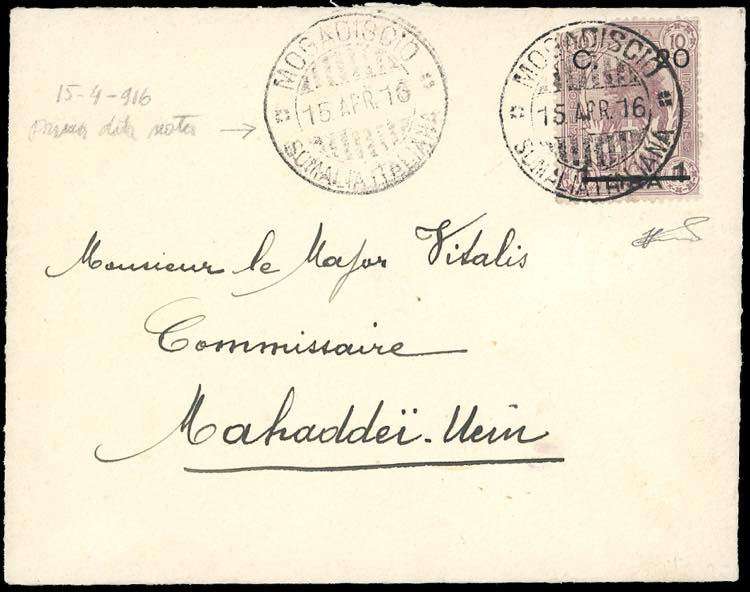 15-4-916
prima data nota →
MOGADISCIO
15 APR. 16
SOMALIA ITALIANA
10
C. 20
MOGADISCIO
15 APR. 16
SOMALIA ITALIANA
1
Monsieur le Major Vitalis
Commissaire
Mahaddeï-Uein